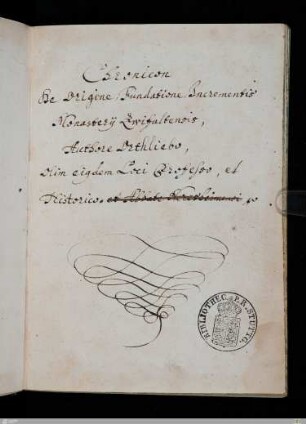 Chronicon
De Origine, Fundatione, Incrementis
Monasterij Zwifaltensis,
Authore Orthliebo,
Olim eiusdem Loci Professo, et
Historico, et Abbate
BIBLIOTHECA P. R. STUTTG.